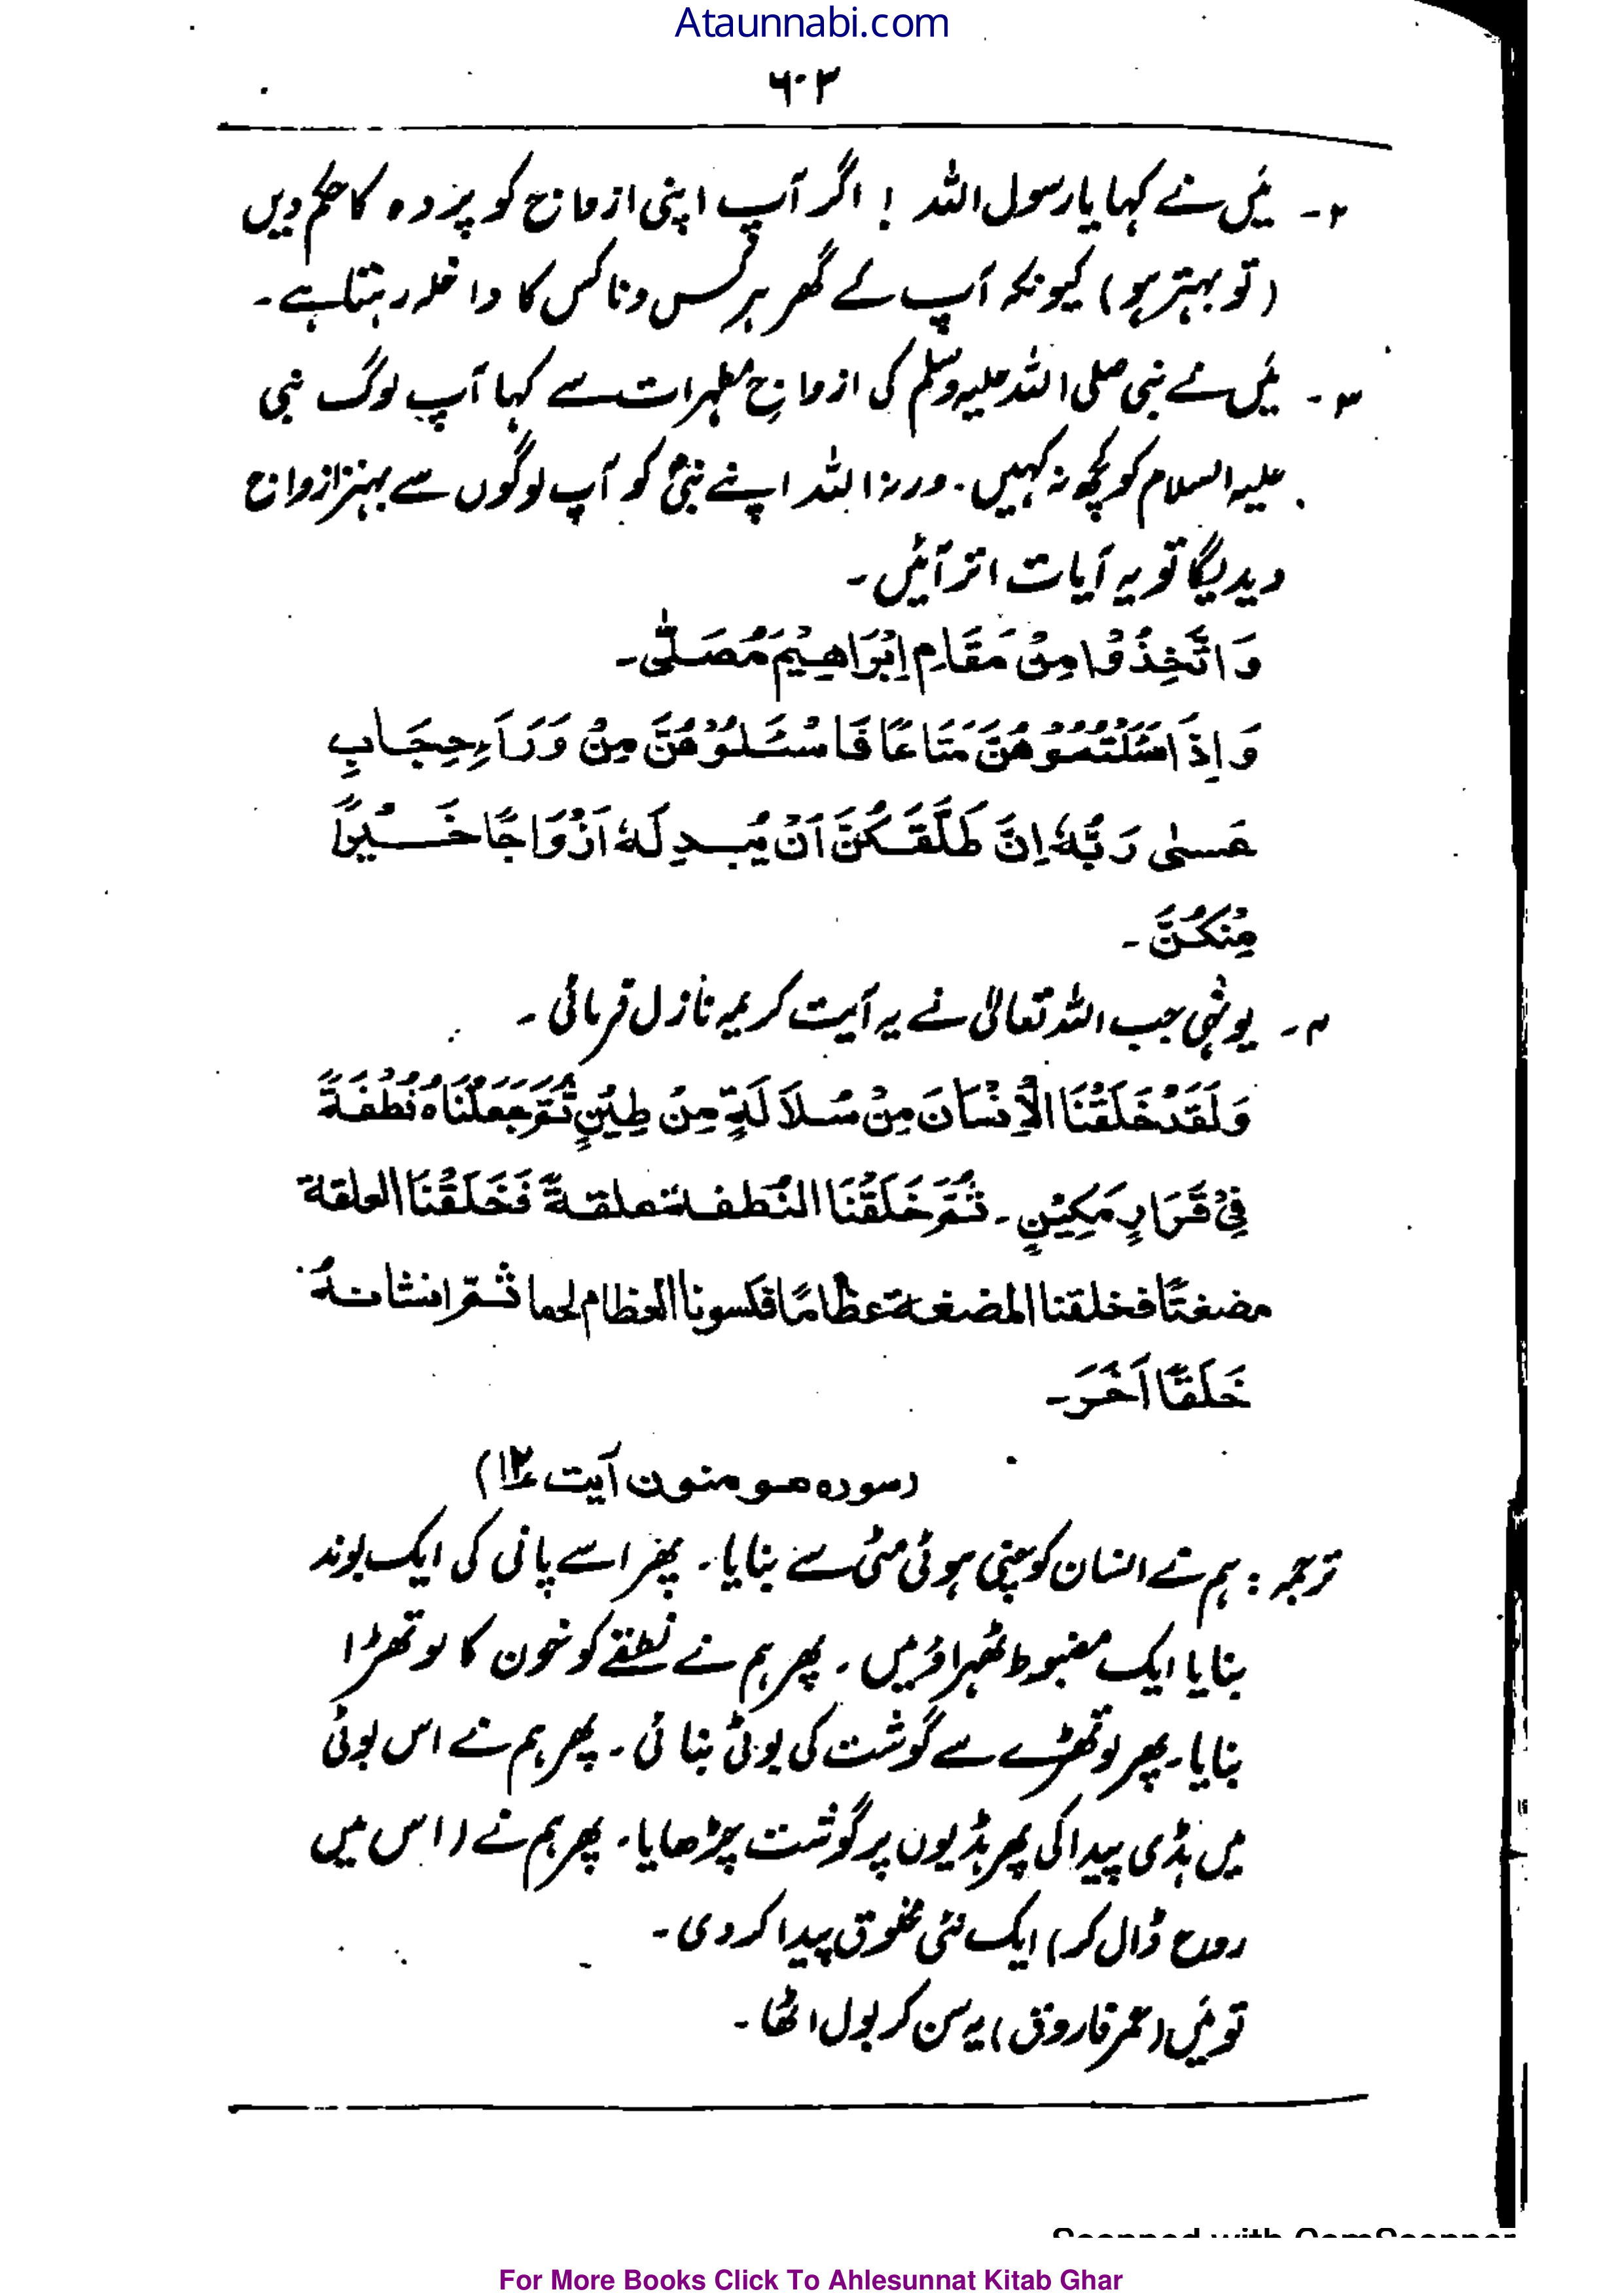 Ataunnabi.com
٦٠٣
۲۔ مَیں نے کہا یا رسول اللہ ! اگر آپ اپنی ازواج کو پردہ کا حکم دیں
(تو بہتر ہو) کیونکہ آپ کے گھر ہر کس و ناکس کا داخلہ رہتا ہے۔
۳۔ مَیں نے نبی صلی اللہ علیہ وسلم کی ازواجِ مطہرات سے کہا آپ لوگ نبی
علیہ السلام کو کچھ نہ کہیں۔ ورنہ اللہ اپنے نبیؐ کو آپ لوگوں سے بہتر ازواج
دیدیگا تو یہ آیات اتر آئیں۔
وَاتَّخِذُوْا مِنْ مَّقَامِ اِبْرَاهِيْمَ مُصَلّٰى۔
وَاِذَا سَئَلْتُمُوْهُنَّ مَتَاعًا فَاسْئَلُوْهُنَّ مِنْ وَرَآءِ حِجَابٍ
عَسٰى رَبُّهٗ اِنَّ طَلَّقَكُنَّ اَنْ يُبْدِلَهٗ اَزْوَاجًا خَيْرًا
مِنْكُنَّ۔
۴۔ یونہی جب اللہ تعالیٰ نے یہ آیت کریمہ نازل فرمائی۔
وَلَقَدْ خَلَقْنَا الْاِنْسَانَ مِنْ سُلَالَةٍ مِنْ طِيْنٍ ثُمَّ جَعَلْنَاهُ نُطْفَةً
فِيْ قَرَارٍ مَكِيْنٍ۔ ثُمَّ خَلَقْنَا النُّطفة علقةً فَخَلَقْنَا العلقة
مضغتًا فخلقنا المضغة عظامًا فكسونا العظام لحما ثمّ انشانهُ
خَلَقًا اَخَرَ۔
(سورہ مومنون آیت ۱۲)
ترجمہ : ہم نے انسان کو چنی ہوئی مٹی سے بنایا۔ پھر اسے پانی کی ایک بوند
بنایا ایک مضبوط ٹھہراؤ میں۔ پھر ہم نے نطفے کو خون کا لوتھڑا
بنایا۔ پھر لوتھڑے سے گوشت کی بوٹی بنائی۔ پھر ہم نے اس بوٹی
میں ہڈی پیدا کی پھر ہڈیوں پر گوشت چڑھایا۔ پھر ہم نے (اس میں
روح ڈال کر) ایک نئی مخلوق پیدا کر دی۔
تو مَیں (عمر فاروق) یہ سن کر بول اٹھا۔
Scanned with CamScanner
For More Books Click To Ahlesunnat Kitab Ghar